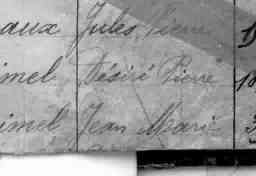 aux Jules, Pierre
imel Désiré Pierre 10
imel Jean Mari